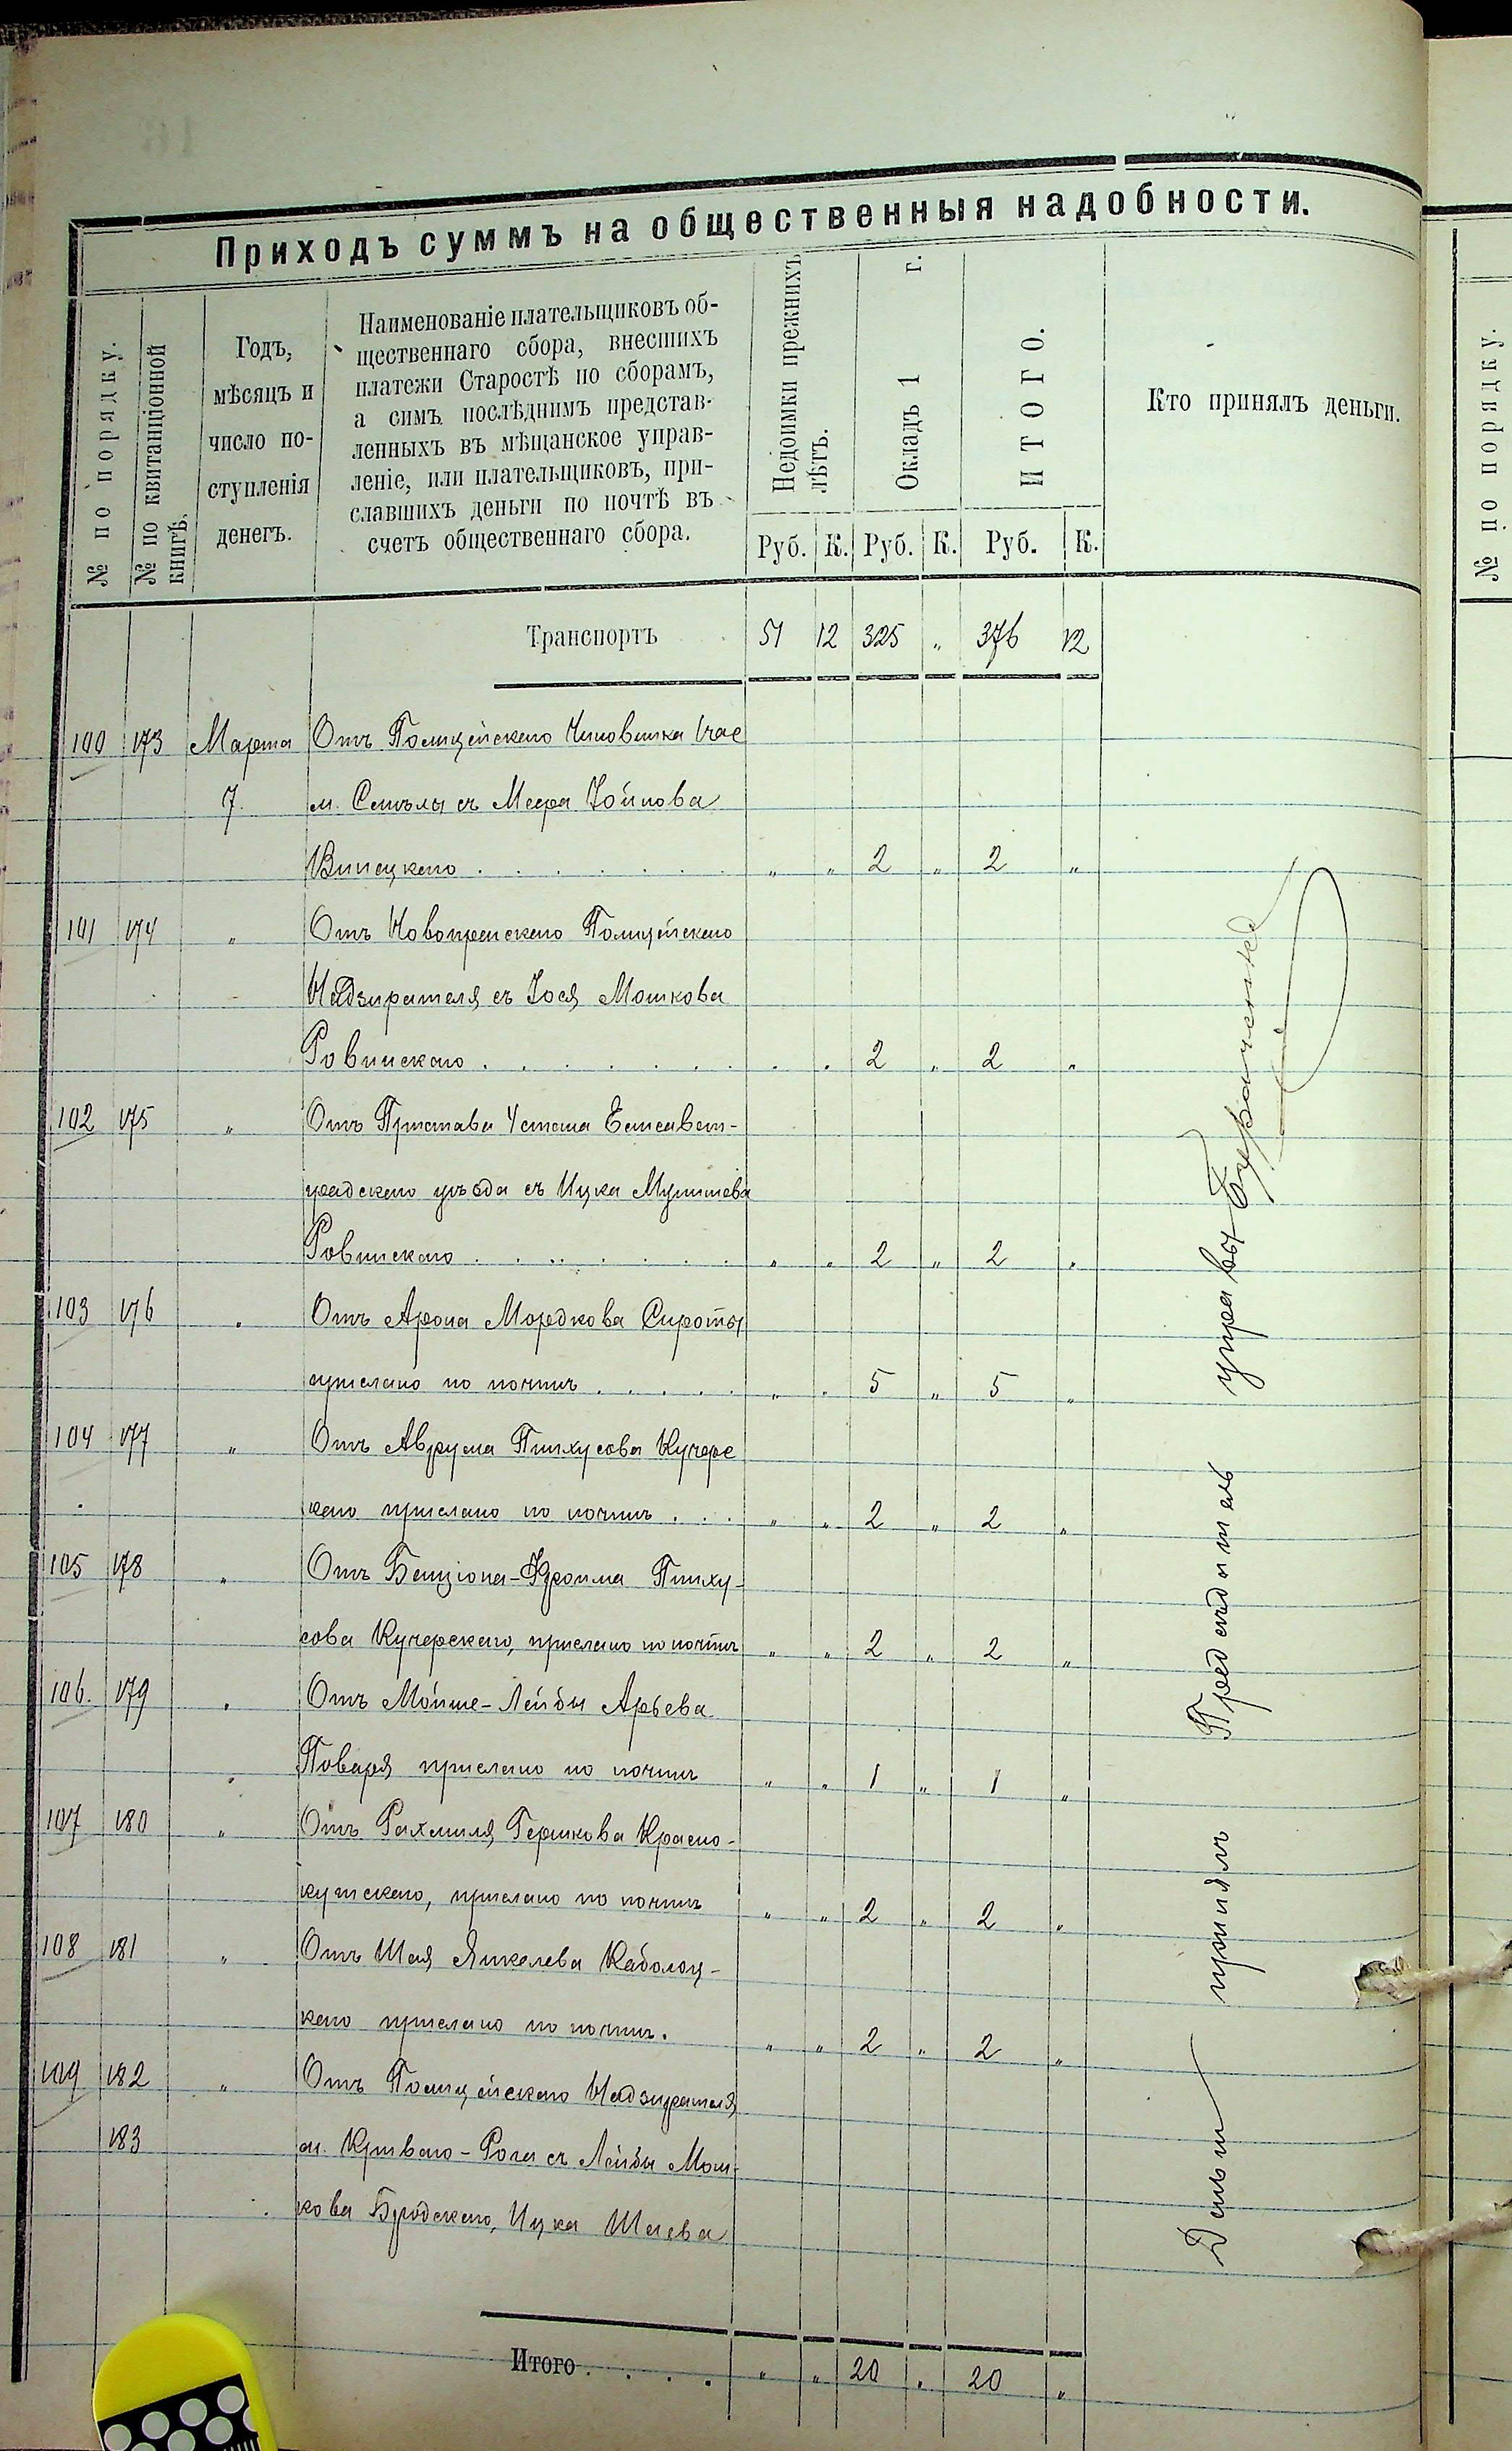 Приходъ суммъ на общественныя надобности.
№ по порядку.
№ по квитанціонной
книгѣ.
Годъ,
мѣсяцъ и
число по-
ступленія
денегъ.
Наименованіе плательщиковъ об-
щественнаго сбора, внесшихъ
платежи Старостѣ по сборамъ,
а симъ послѣднимъ представ-
ленныхъ въ мѣщанское управ-
леніе, или плательщиковъ, при-
славшихъ деньги по почтѣ въ
счетъ общественнаго сбора.
Недоимки прежнихъ
лѣтъ.
Окладъ 1 г.
ИТОГО.
Кто принялъ деньги.
Руб. К. Руб. К. Руб. К.
Транспортъ 51 12 325 „ 376 12
100 173 Марта Отъ Полицейскаго Чиновника
7. м. Смѣлы съ Меера Хоинова
„ „ 2 „ 2 „
101 174 „ Отъ Новопражскаго Полицейскаго
Надзирателя съ Іося Мошкова
Ровинскаго . . . . . . . . 2 „ 2 „
102 175 „ Отъ Пристава 4 стана Елисавет-
градскаго уѣзда съ Ицка
Ровинскаго . . . . . . . „ „ 2 „ 2 „
103 176 „ Отъ Арона Мордкова Сироты
прислано по почтѣ . . . . . „ „ 5 „ 5 „
104 177 „ Отъ Аврума Пинхусова Кучере
скаго прислано по почтѣ . . . „ „ 2 „ 2 „
105 178 „ Отъ Бенціона-Фроима Пинху-
сова Кучерскаго, прислано по почтѣ „ „ 2 „ 2 „
106. 179 „ Отъ Мойше-Лейбы Арьева
Поваря прислано по почтѣ „ „ 1 „ 1 „
107 180 „ Отъ Рахмиля Гершкова Красно-
кутскаго, прислано по почтѣ „ „ 2 „ 2 „
108 181 „ Отъ Шая Янкелева Каболоц-
каго прислано по почтѣ. „ „ 2 „ 2 „
109 182 „ Отъ Полицейскаго Надзирателя
183 м. Криваго-Рога съ Лейбы Мош-
кова Бродскаго, Ицка Шаева
Итого . . . . „ „ 20 „ 20 „
Деньги принялъ Предсѣдатель управы
№ по порядку.